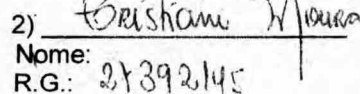 2) Cristiani Moura
Nome:
R.G.: 27392145